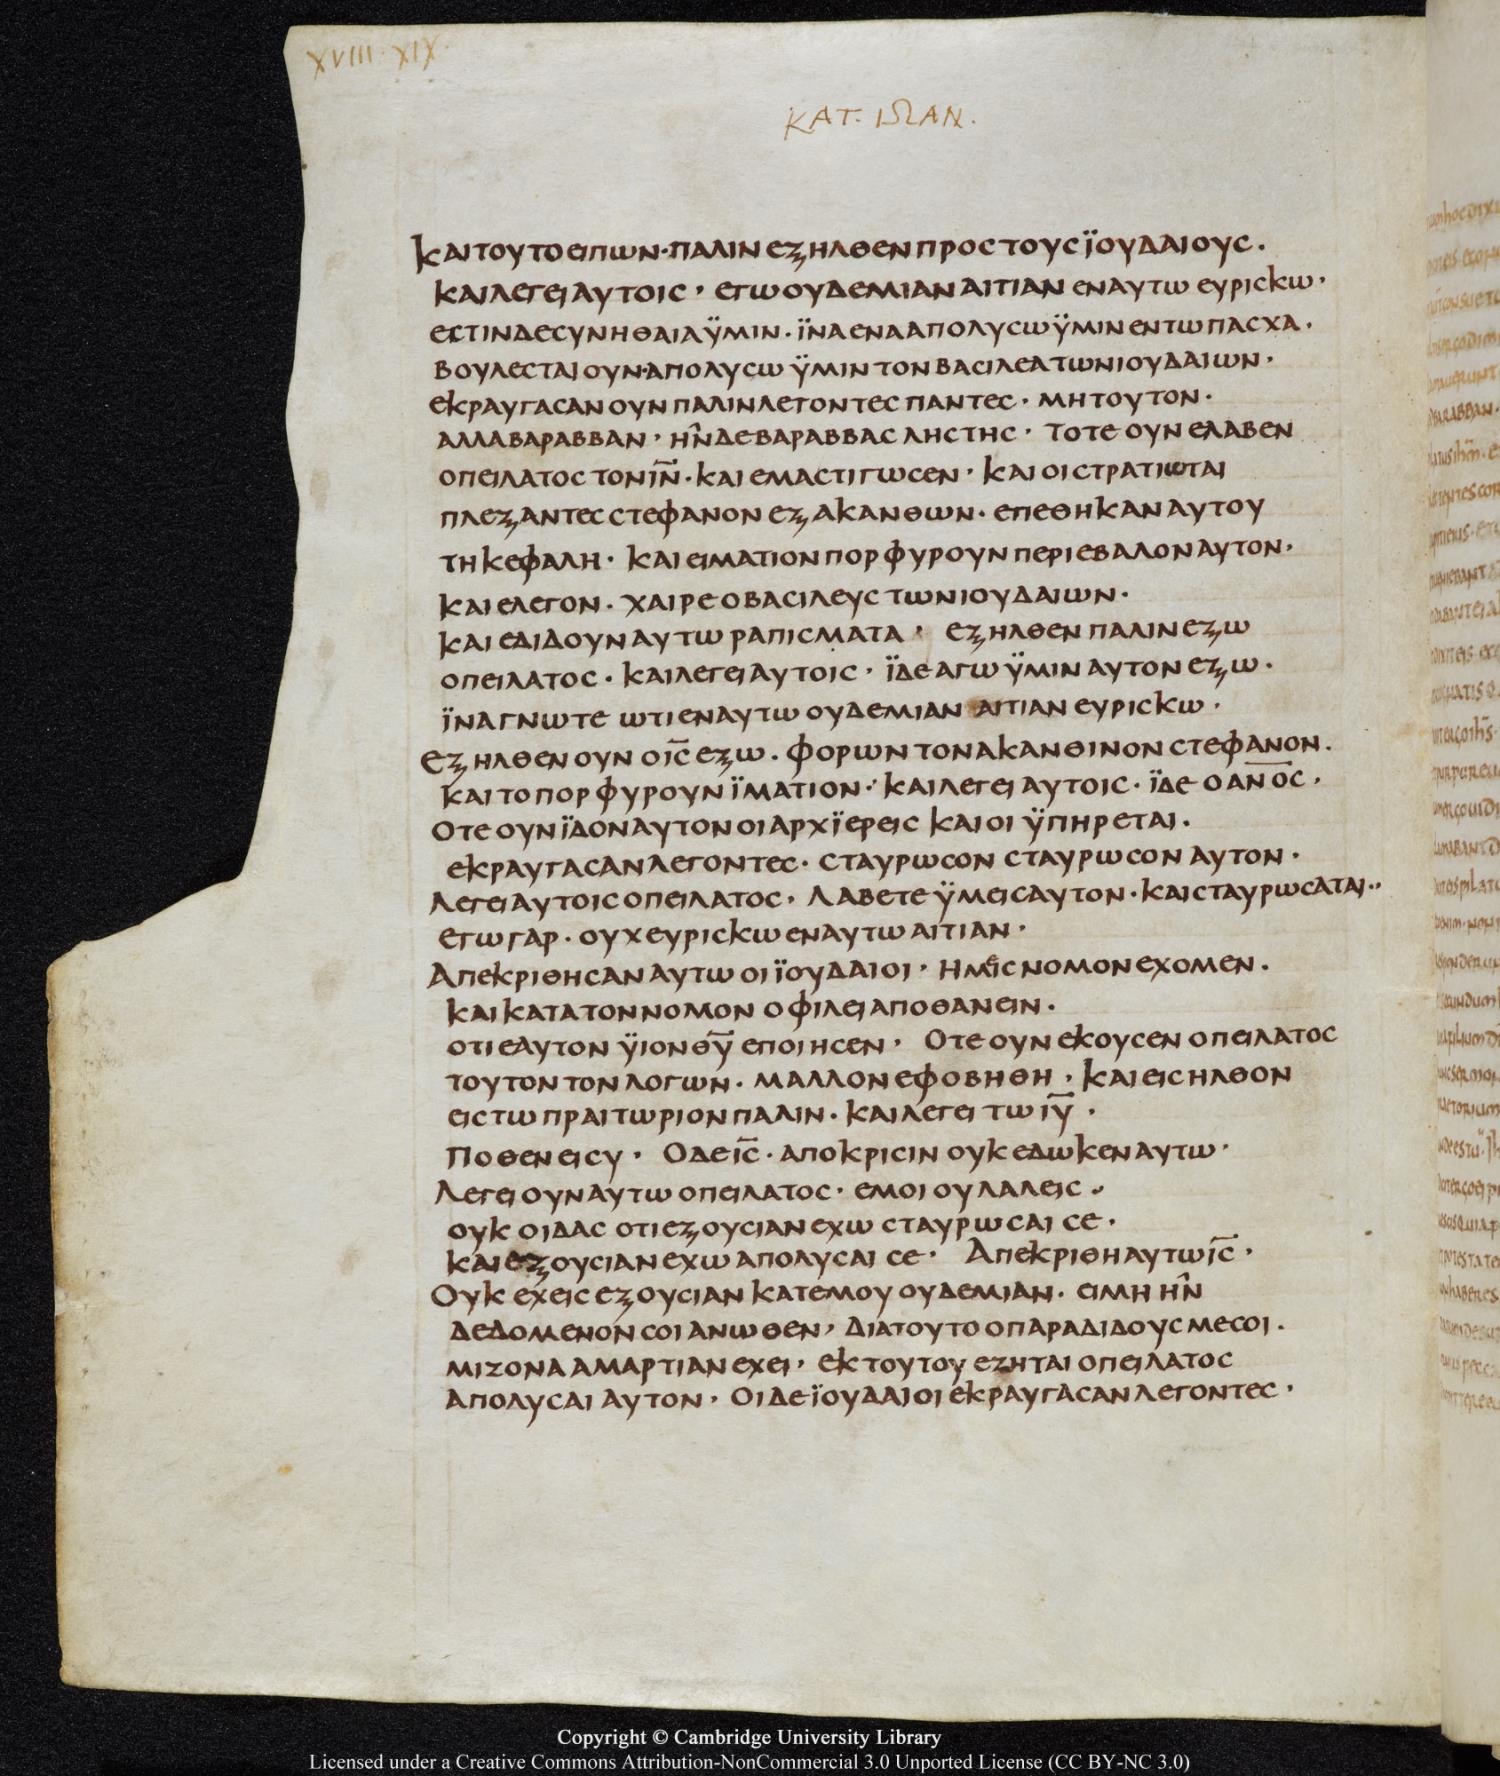 XVIII·XIX·
ΚΑΤ. ΙΩΑΝ.
ΚΑΙΤΟΥΤΟΕΙΠΩΝ·ΠΑΛΙΝΕΞΗΛΘΕΝΠΡΟΣΤΟΥΣΪΟΥΔΑΙΟΥΣ·
ΚΑΙΛΕΓΕΙΑΥΤΟΙΣ· ΕΓΩΟΥΔΕΜΙΑΝΑΙΤΙΑΝ ΕΝΑΥΤΩ ΕΥΡΙΣΚΩ·
ΕΣΤΙΝΔΕΣΥΝΗΘΑΙΑΫΜΙΝ·ΪΝΑΕΝΑΑΠΟΛΥΣΩΫΜΙΝΕΝΤΩΠΑΣΧΑ·
ΒΟΥΛΕΣΤΑΙΟΥΝ·ΑΠΟΛΥΣΩ ΫΜΙΝΤΟΝΒΑΣΙΛΕΑΤΩΝΙΟΥΔΑΙΩΝ·
ΕΚΡΑΥΓΑΣΑΝΟΥΝΠΑΛΙΝΛΕΓΟΝΤΕΣΠΑΝΤΕΣ· ΜΗΤΟΥΤΟΝ·
ΑΛΛΑΒΑΡΑΒΒΑΝ· ΗΝ̂ΔΕΒΑΡΑΒΒΑΣ ΛΗΣΤΗΣ· ΤΟΤΕ ΟΥΝ ΕΛΑΒΕΝ
ΟΠΕΙΛΑΤΟΣ ΤΟΝΙ̅Ν̅·ΚΑΙΕΜΑΣΤΙΓΩΣΕΝ· ΚΑΙΟΙΣΤΡΑΤΙΩΤΑΙ
ΠΛΕΞΑΝΤΕΣΣΤΕΦΑΝΟΝΕΞΑΚΑΝΘΩΝ·ΕΠΕΘΗΚΑΝΑΥΤΟΥ
ΤΗΚΕΦΑΛΗ· ΚΑΙΕΙΜΑΤΙΟΝΠΟΡΦΥΡΟΥΝΠΕΡΙΕΒΑΛΟΝΑΥΤΟΝ·
ΚΑΙΕΛΕΓΟΝ· ΧΑΙΡΕΟΒΑΣΙΛΕΥΣΤΩΝΙΟΥΔΑΙΩΝ·
ΚΑΙΕΔΙΔΟΥΝΑΥΤΩ ΡΑΠΙΣΜΑΤΑ· ΕΞΗΛΘΕΝΠΑΛΙΝΕΞΩ
ΟΠΕΙΛΑΤΟΣ·ΚΑΙΛΕΓΕΙΑΥΤΟΙΣ· ΪΔΕΑΓΩΫΜΙΝΑΥΤΟΝΕΞΩ·
ΪΝΑΓΝΩΤΕ ΩΤΙΕΝΑΥΤΩ ΟΥΔΕΜΙΑΝ ΑΙΤΙΑΝΕΥΡΙΣΚΩ·
ΕΞΗΛΘΕΝΟΥΝ ΟΙ̅Σ̅ΕΞΩ·ΦΟΡΩΝΤΟΝΑΚΑΝΘΙΝΟΝΣΤΕΦΑΝΟΝ·
ΚΑΙΤΟΠΟΡΦΥΡΟΥΝΪΜΑΤΙΟΝ·ΚΑΙΛΕΓΕΙΑΥΤΟΙΣ·ΪΔΕΟΑΝ̅Ο̅Σ·
ΟΤΕΟΥΝΪΔΟΝΑΥΤΟΝΟΙΑΡΧΪΕΡΕΙΣ ΚΑΙΟΙ ΫΠΗΡΕΤΑΙ·
ΕΚΡΑΥΓΑΣΑΝΛΕΓΟΝΤΕΣ· ΣΤΑΥΡΩΣΟΝ ΣΤΑΥΡΩΣΟΝ ΑΥΤΟΝ·
ΛΕΓΕΙΑΥΤΟΙΣΟΠΕΙΛΑΤΟΣ·ΛΑΒΕΤΕΫΜΕΙΣΑΥΤΟΝ·ΚΑΙΣΤΑΥΡΩΣΑΤΑΙ··
ΕΓΩΓΑΡ·ΟΥΧΕΥΡΙΣΚΩΕΝΑΥΤΩΑΙΤΙΑΝ·
ΑΠΕΚΡΙΘΗΣΑΝΑΥΤΩΟΙΪΟΥΔΑΙΟΙ· ΗΜΕΙΣΝΟΜΟΝΕΧΟΜΕΝ·
ΚΑΙΚΑΤΑΤΟΝΝΟΜΟΝ ΟΦΙΛΕΙΑΠΟΘΑΝΕΙΝ·
ΟΤΙΕΑΥΤΟΝ ΫΙΟΝΘ̅Υ̅ ΕΠΟΙΗΣΕΝ· ΟΤΕΟΥΝΕΚΟΥΣΕΝΟΠΕΙΛΑΤΟΣ
ΤΟΥΤΟΝΤΟΝΛΟΓΩΝ·ΜΑΛΛΟΝΕΦΟΒΗΘΗ·ΚΑΙΕΙΣΗΛΘΟΝ
ΕΙΣΤΩΠΡΑΙΤΩΡΙΟΝΠΑΛΙΝ·ΚΑΙΛΕΓΕΙ ΤΩΙ̅Υ̅·
ΠΟΘΕΝΕΙΣΥ· ΟΔΕΙ̅Σ̅·ΑΠΟΚΡΙΣΙΝ ΟΥΚΕΔΩΚΕΝΑΥΤΩ·
ΛΕΓΕΙΟΥΝΑΥΤΩΟΠΕΙΛΑΤΟΣ·ΕΜΟΙΟΥΛΑΛΕΙΣ·
ΟΥΚ ΟΙΔΑΣ ΟΤΙΕΞΟΥΣΙΑΝΕΧΩ ΣΤΑΥΡΩΣΑΙ ΣΕ·
ΚΑΙΕΞΟΥΣΙΑΝΕΧΩΑΠΟΛΥΣΑΙ ΣΕ· ΑΠΕΚΡΙΘΗΑΥΤΩΙ̅Σ̅·
ΟΥΚ ΕΧΕΙΣΕΞΟΥΣΙΑΝΚΑΤΕΜΟΥΟΥΔΕΜΙΑΝ·ΕΙΜΗΗΝ̂
ΔΕΔΟΜΕΝΟΝΣΟΙΑΝΩΘΕΝ·ΔΙΑΤΟΥΤΟΟΠΑΡΑΔΙΔΟΥΣΜΕΣΟΙ·
ΜΙΖΟΝΑΑΜΑΡΤΙΑΝΕΧΕΙ·ΕΚΤΟΥΤΟΥΕΖΗΤΑΙΟΠΕΙΛΑΤΟΣ
ΑΠΟΛΥΣΑΙΑΥΤΟΝ·ΟΙΔΕΪΟΥΔΑΙΟΙΕΚΡΑΥΓΑΣΑΝΛΕΓΟΝΤΕΣ·
Copyright © Cambridge University Library
Licensed under a Creative Commons Attribution-NonCommercial 3.0 Unported License (CC BY-NC 3.0)